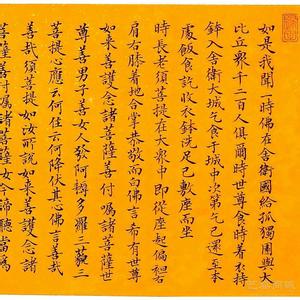 如是我聞一時佛在舍衛國給孤獨園與大
比丘眾千二百人俱爾時世尊食時着衣持
鉢入舍衛大城乞食于城中次第乞已還至本
處飯食訖收衣鉢洗足已敷座而坐
時長老須菩提在大眾中即從座起偏袒右
肩右膝着地合掌恭敬而白佛言希有世尊
如來善護念諸菩薩善付囑諸菩薩世
尊善男子善女人發阿耨多羅三藐三
菩提心應云何住云何降伏其心佛言善哉
善哉須菩提如汝所說如來善護念諸
菩薩善付囑諸菩薩汝今諦聽當為